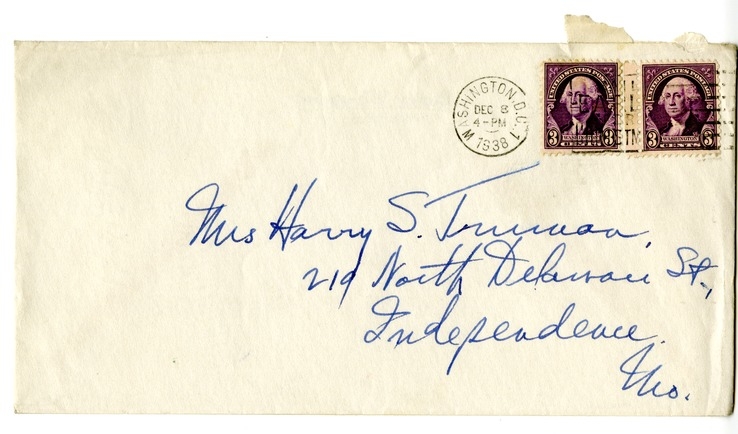 UNITED STATES POSTAGE UNITED STATES POSTAGE
WASHINGTON, D.C. 1
DEC 8
4-PM
1938
3 WASHINGTON 3 3 WASHINGTON 3
CENTS CENTS
MAIL
EARLY
Mrs Harry S. Truman,
219 North Delaware St.,
Independence
Mo.